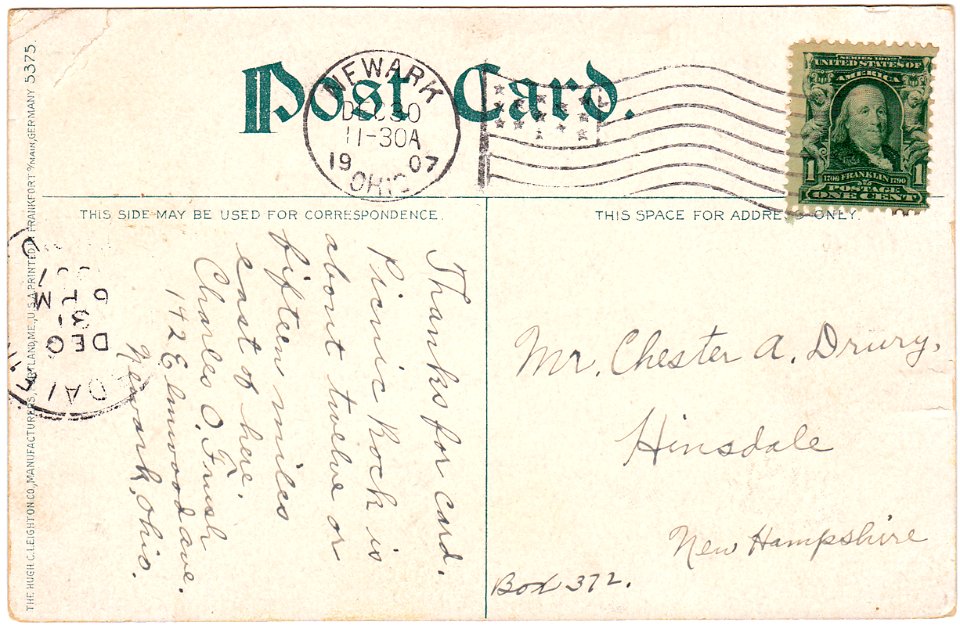 Post Card.
NEWARK
DEC 30
11-30A
1907
OHIO
SERIES 1902
UNITED STATES OF
AMERICA
1706 FRANKLIN 1790
POSTAGE
1 ONE CENT 1
THIS SIDE MAY BE USED FOR CORRESPONDENCE.
THIS SPACE FOR ADDRESS ONLY.
Thanks for card.
Picnic Rock is
about twelve or
fifteen miles
east of here.
Charles O.
142 Elmwood ave.
Newark, Ohio.
Mr. Chester A. Drury,
Hinsdale
New Hampshire
Box 372.
DALE
DEC
31
6 PM
THE HUGH C. LEIGHTON CO., MANUFACTURERS, PORTLAND, ME., U.S.A. PRINTED IN FRANKFORT O/MAIN, GERMANY 5375.